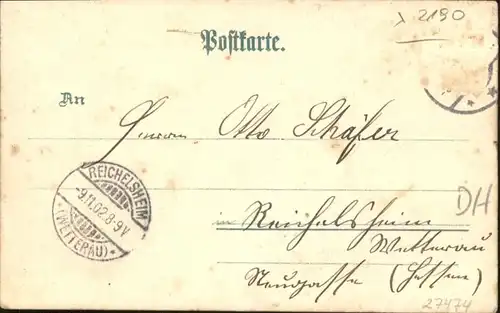 λ 2190
Postkarte.
An
Herrn Otto Schäfer
REICHELSHEIM
-9.11.02.8-9V
*(WETTERAU)*
DH
Reichelsheim
Wetterau
Neugasse (Hessen)
27474